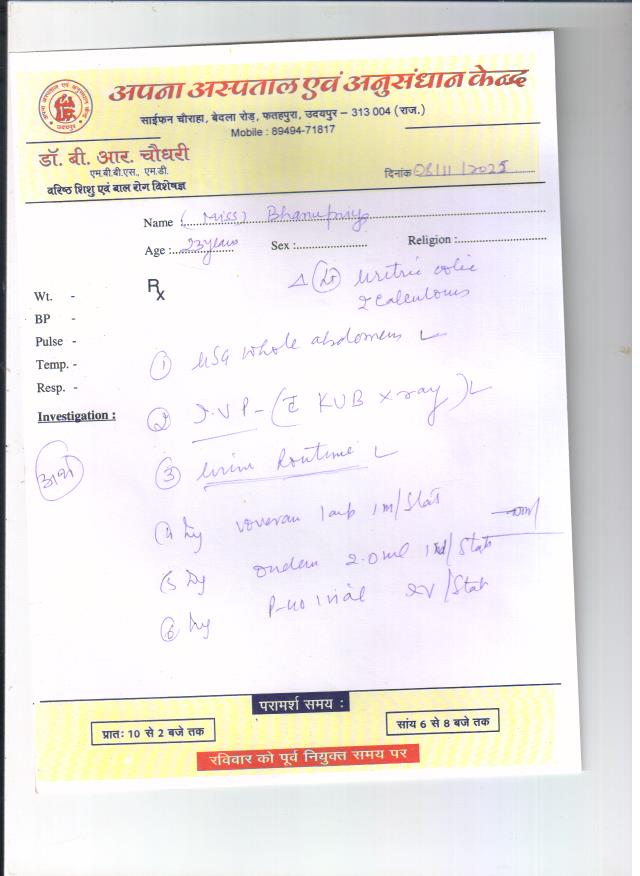 अपना अस्पताल एवं अनुसंधान केन्द्र
साईफन चौराहा, बेदला रोड़, फतहपुरा, उदयपुर – 313 004 (राज.)
Mobile : 89494-71817
डॉ. बी. आर. चौधरी
एम.बी.बी.एस., एम.डी.
वरिष्ठ शिशु एवं बाल रोग विशेषज्ञ
दिनांक 08/11/2025
Name : (Miss) Bhanupriya
Age : 23 years Sex : Religion :
Rx
uretric colic
calculous
Wt. -
BP -
Pulse -
Temp. -
Resp. -
Investigation :
① USG whole abdomen
② I.V.P - (c KUB x ray)
③ Urine Routine
(4 Inj voveran 1 amp 1m/Stat
(5 Inj ondem 2.0ml /Stat
⑥ Inj P-40 1 vial IV/Stat
परामर्श समय :
प्रातः 10 से 2 बजे तक
सांय 6 से 8 बजे तक
रविवार को पूर्व नियुक्त समय पर